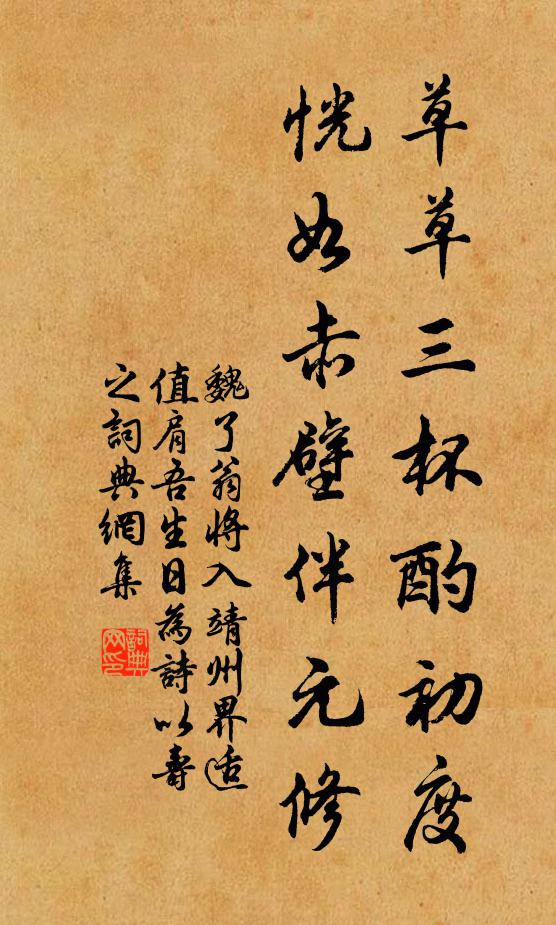 草草三杯酌初度
恍如赤壁伴元修
魏了翁将入靖州界适
值肩吾生日為詩以壽
之詞典網集
詞典
网印